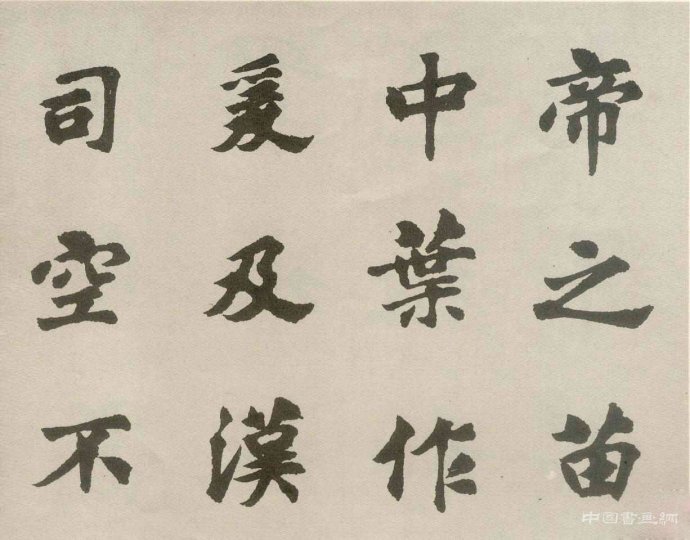 帝之苗
中葉作
爰及漢
司空不
中国書画網